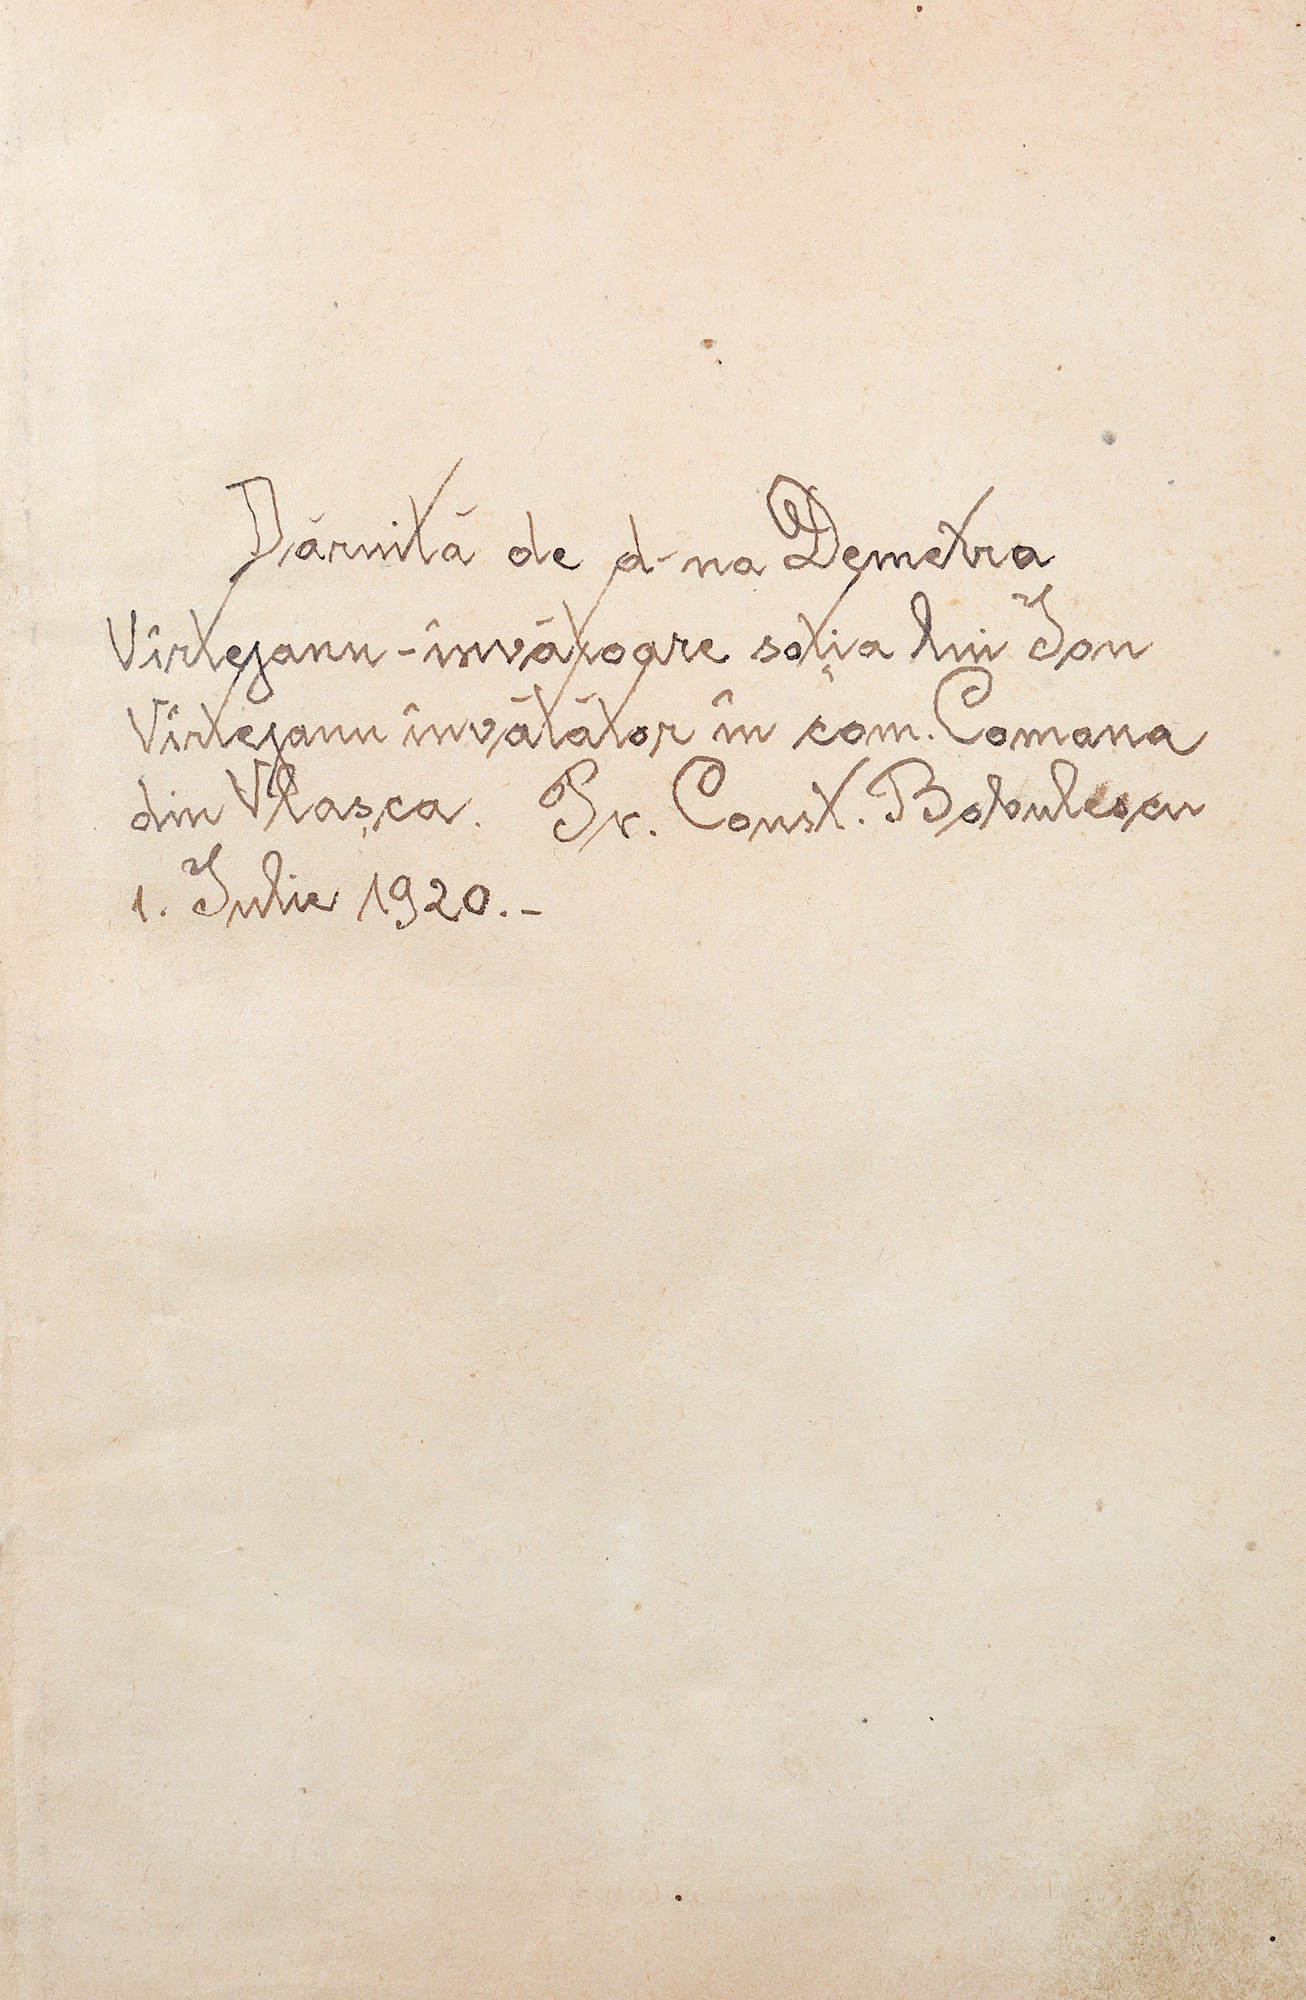 Dăruită de d-na Demetra
Vîrtejanu-învățoare soția lui Ion
Vîrtejanu învătător în com. Comana
din Vlașca. Pr. Const. Bobulescu
1. Iulie 1920.-